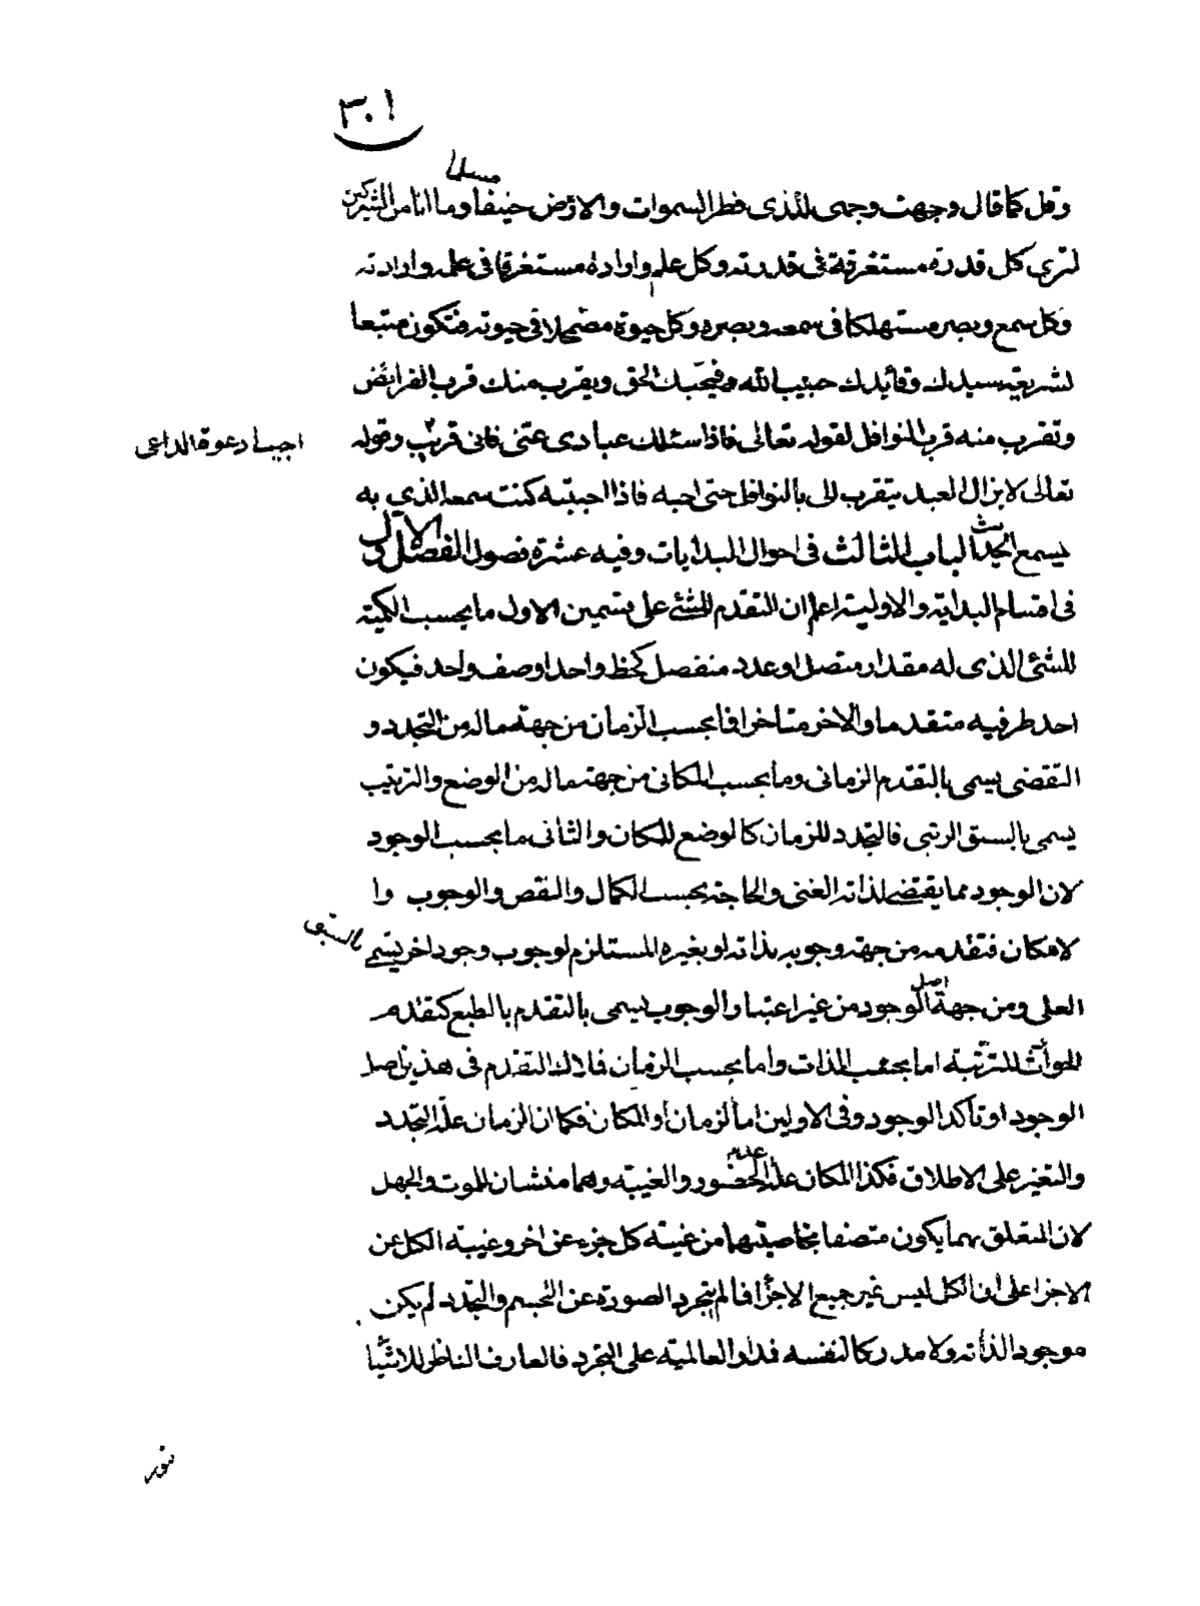 ٣٠١
مسلما
وقل كما قال وجهت وجهى للذى فطر السموات والارض حنيفا وما انا من المشركين
لترى كل قدرة مستغرقة فى قدرته وكل علم وارادة مستغرقا فى علمه وارادته
وكل سمع وبصر مستهلكا فى سمعه وبصره وكل حيوة مضمحلا فى حيوته فتكون متبعا
لشريعة سيدك وقائدك حبيب الله فيحبك الحق ويقرب منك قرب الفرائض
وتقرب منه قرب النوافل لقوله تعالى فاذا سئلك عبادى عنى فانى قريب وقوله
اجيب دعوة الداعى
تعالى لا يزال العبد يتقرب الى بالنوافل حتى احبه فاذا احببته كنت سمعه الذى به
يسمع الحديث الباب الثالث فى احوال البدايات وفيه عشرة فصول الفصل الاول
فى اقسام البداية والاولية اعلم ان التقدم للشئ على قسمين الاول ما بحسب الكمية
للشئ الذى له مقدار متصل او عدد منفصل كخط واحد او صف واحد فيكون
احد طرفيه متقدما والاخر متاخرا فما بحسب الزمان من جهة ماله من التجدد و
التقضى يسمى بالتقدم الزمانى وما بحسب المكانى من جهة ماله من الوضع والترتيب
يسمى بالسبق الرتبى فالتجدد للزمان كالوضع للمكان والثانى ما بحسب الوجود
لان الوجود مما يقتضى لذاته الغنى والحاجة بحسب الكمال والنقص والوجوب وا
لامكان فتقدمه من جهة وجوبه بذاته او بغيره المستلزم لوجوب وجود اخر يسمى
بالسبق
العلى ومن جهة اصل الوجود من غير اعتبار الوجوب يسمى بالتقدم بالطبع كتقدم
المترتبة اما بحسب الذات واما بحسب الزمان فملاك التقدم فى هذين اصل
الوجود او تاكد الوجود وفى الاولين اما الزمان او المكان فكما ان الزمان علة التجدد
والتغير على الاطلاق فكذا المكان علة عدم الحضور والغيبة وهما منشان للموت والجهل
لان المتعلق بهما يكون متصفا بخاصيتهما من غيبة كل جزء عن اخر وغيبة الكل عن
الاجزا على ان الكل ليس غير جميع الاجزا فما لم يتجرد الصورة عن التجسم والتجدد لم يكن
موجود الذاته ولا مدركا لنفسه فمدار العالمية على التجرد فالعارف الناظر للاشيا